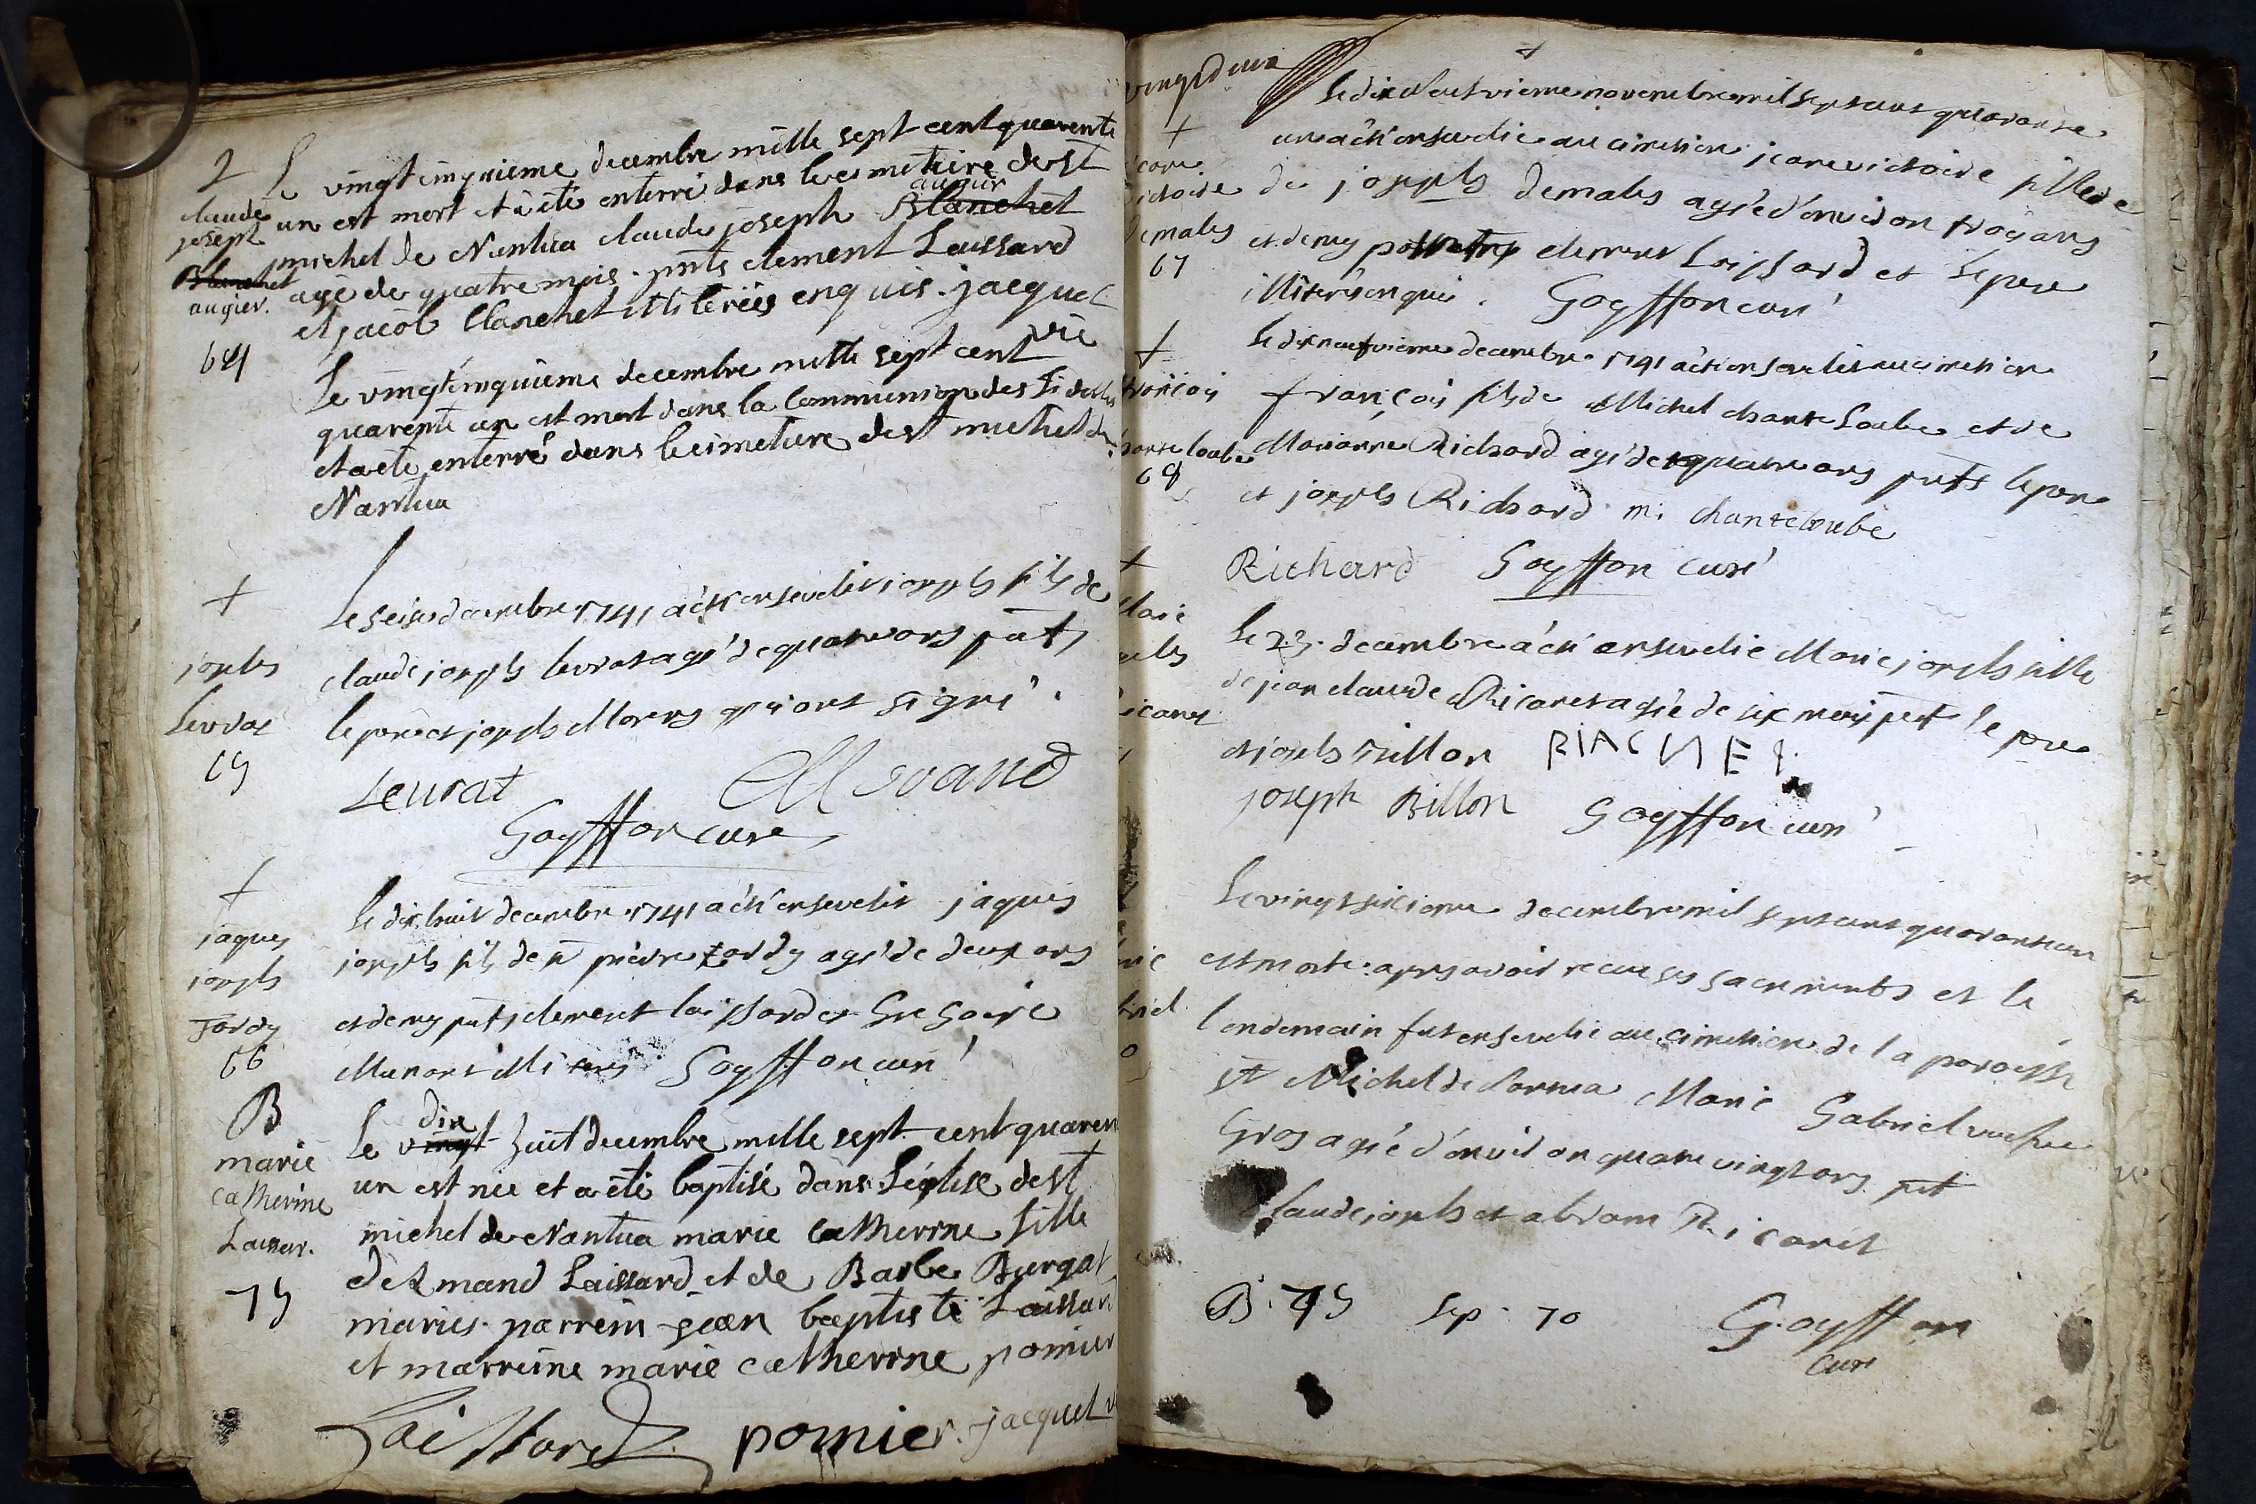 2
claude
joseph
Blanchet
augier.
64
Le vingtcinquieme decembre mille sept cent quarente
un est mort et a été enterré dans le cimetiere de st
michel de Nantua claude joseph augier Blanchet
agé de quatre mois. pnts clement Laissard
et jacob Blanchet illiterées enquis. jacquet
vic
Le vingtcinquieme decembre mille sept cent
quarente un est mort dans la Communion des fidelles
et a eté enterré dans le cimetiere de st michel de
Nantua
+
joseph
Levrat
65
Le seise decembre 1741 a été enseveli joseph fils de
claude joseph levrat agé de quatre ans pnts
le pere et joseph Morand qui ont signé.
Leurat Morand
Goyffon curé
+
jaques
joseph
Tardy
66
Le dix huit decembre 1741 a été enseveli jaques
joseph fils de pierre tardy agé de deux ans
et demy pnts clement laissard et Gregoire
Goyffon curé
B
marie
catherine
Laissar.
75
Le dix vingt huit decembre mille sept cent quaren
un est née et a été baptisé dans L'église de st
michel de Nantua marie catherine fille
mand Laissard et de Barbe Burgat
mariés. parrein jean baptiste Laissar
et marreine marie catherine pomier
Laissard pomier. jacquet v
vingtdeux
+
jeane
victoire
demales
67
Le dix neufvieme novembre mil sept cent quarante
un a été ensevelie au cimetiere jeane victoire fille de
de joseph demales agée d'environ trois ans
et demy clement Laissard et le pere
illiterés enquis. Goyffon curé
+
françois
chanteloube
68
Le dix neufvieme decembre 1741 a été enseveli au cimetiere
françois fils de Michel chanteloube et de
Marianne Richard agé de quatre ans pnts le pere
et joseph Richard m: chanteloube
Richard Goyffon curé
+
Marie
joseph
Ricaret
Le 23. decembre a été ensevelie Marie joseph fille
de jean claude Ricaret agée de six mois pnts le pere
et joseph Billon
joseph Billon Goyffon curé
Le vingt sixieme decembre mil sept cent quarante un
est morte apres avoir recu ses sacrements et le
lendemain fut ensevelie au cimetiere de la paroisse
st Michel de Nantua Marie Gabriel veufve
Gros agée d'environ quatre vingt ans pnt
Claude joseph et abram Ricaret
B. 75 Sep. 70 Goyffon
curé